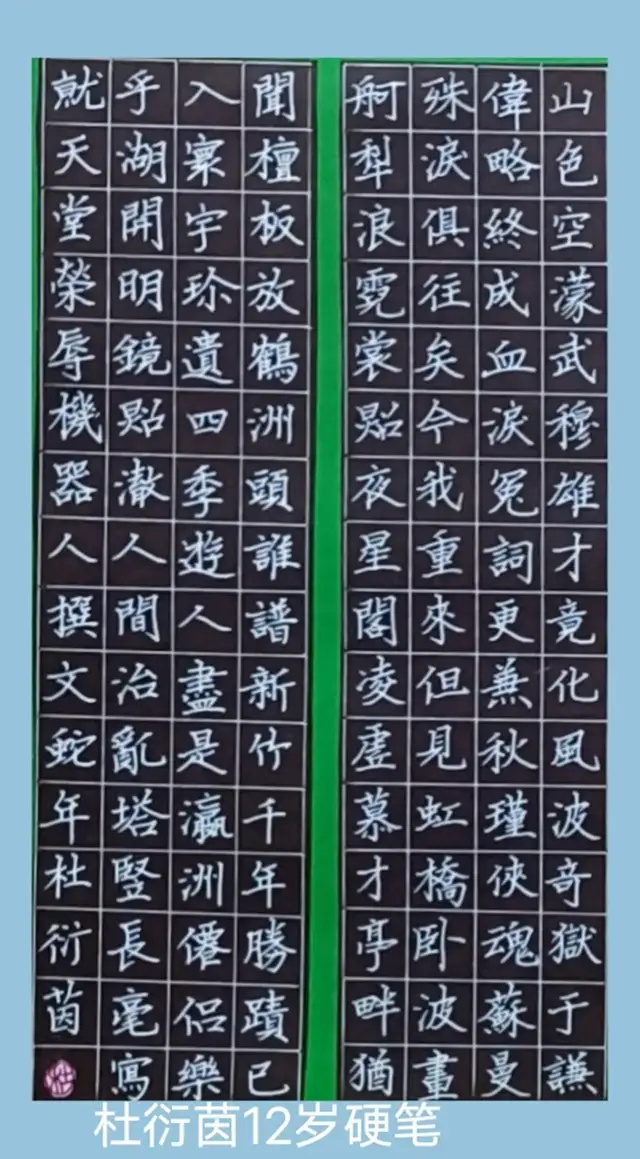 山色空濛武穆雄才竟化風波奇獄于謙
偉略終成血淚冤詞更兼秋瑾俠魂蘇曼
殊淚俱往矣今我重來但見虹橋卧波畫
舸犁浪霓裳照夜星閣凌虛慕才亭畔猶
聞檀板放鶴洲頭誰譜新竹千年勝蹟已
入寰宇珍遺四季遊人盡是瀛洲僊侶樂
乎湖開明鏡照澈人間治亂塔竪長毫寫
就天堂榮辱機器人撰文蛇年杜衍茵
杜衍茵12岁硬笔